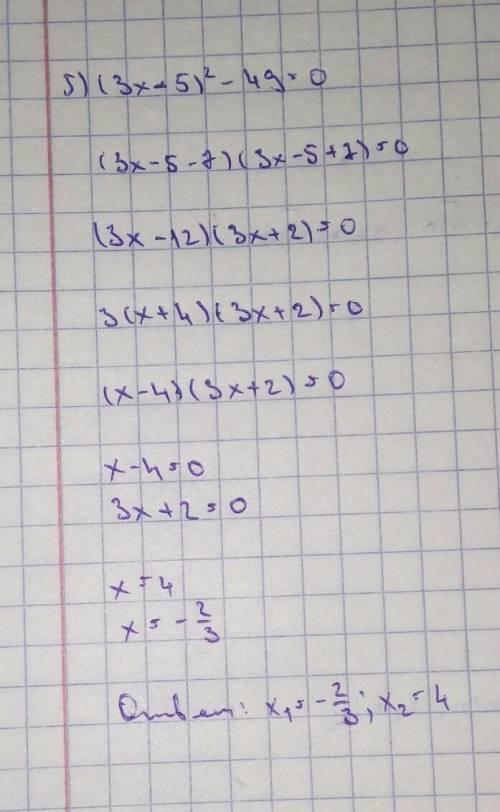 5) (3x-5)² - 49 = 0
(3x-5-7)(3x-5+7) = 0
(3x-12)(3x+2) = 0
3(x+4)(3x+2) = 0
(x-4)(3x+2) = 0
x-4=0
3x+2=0
x=4
x=-2/3
Ответ: x₁=-2/3; x₂=4